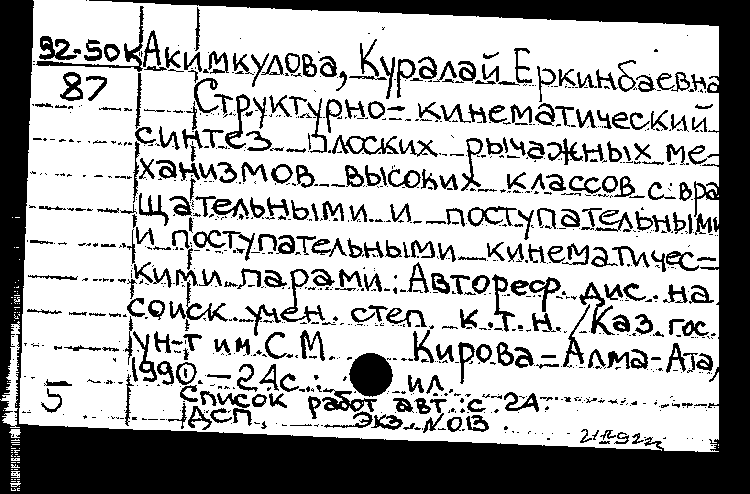 92-50К Акимкулова, Куралай Еркинбаевна
87 Структурно-кинематический
синтез плоских рычажных ме-
ханизмов высоких классов с вра
щательными и поступательными
и поступательными кинематичес=
кими парами: Автореф. дис. на
соиск. учен. степ. к.т.н. / Каз. гос.
ун-т им. С.М Кирова = Алма-Ата,
1990. - 24с.: ил.
5 Список работ авт. с. 24.
ДСП. Экз. N 013.